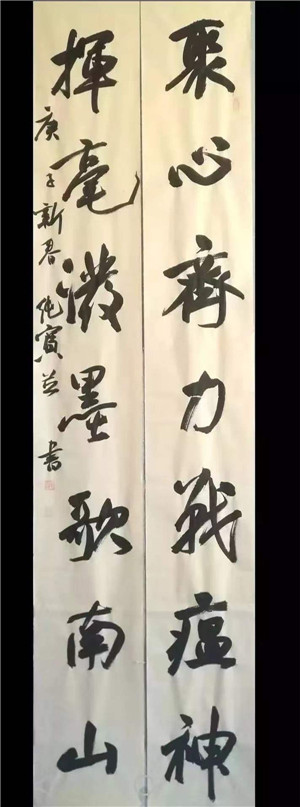 聚心齊力戰瘟神
揮毫潑墨歌南山
庚子新春 寶 書